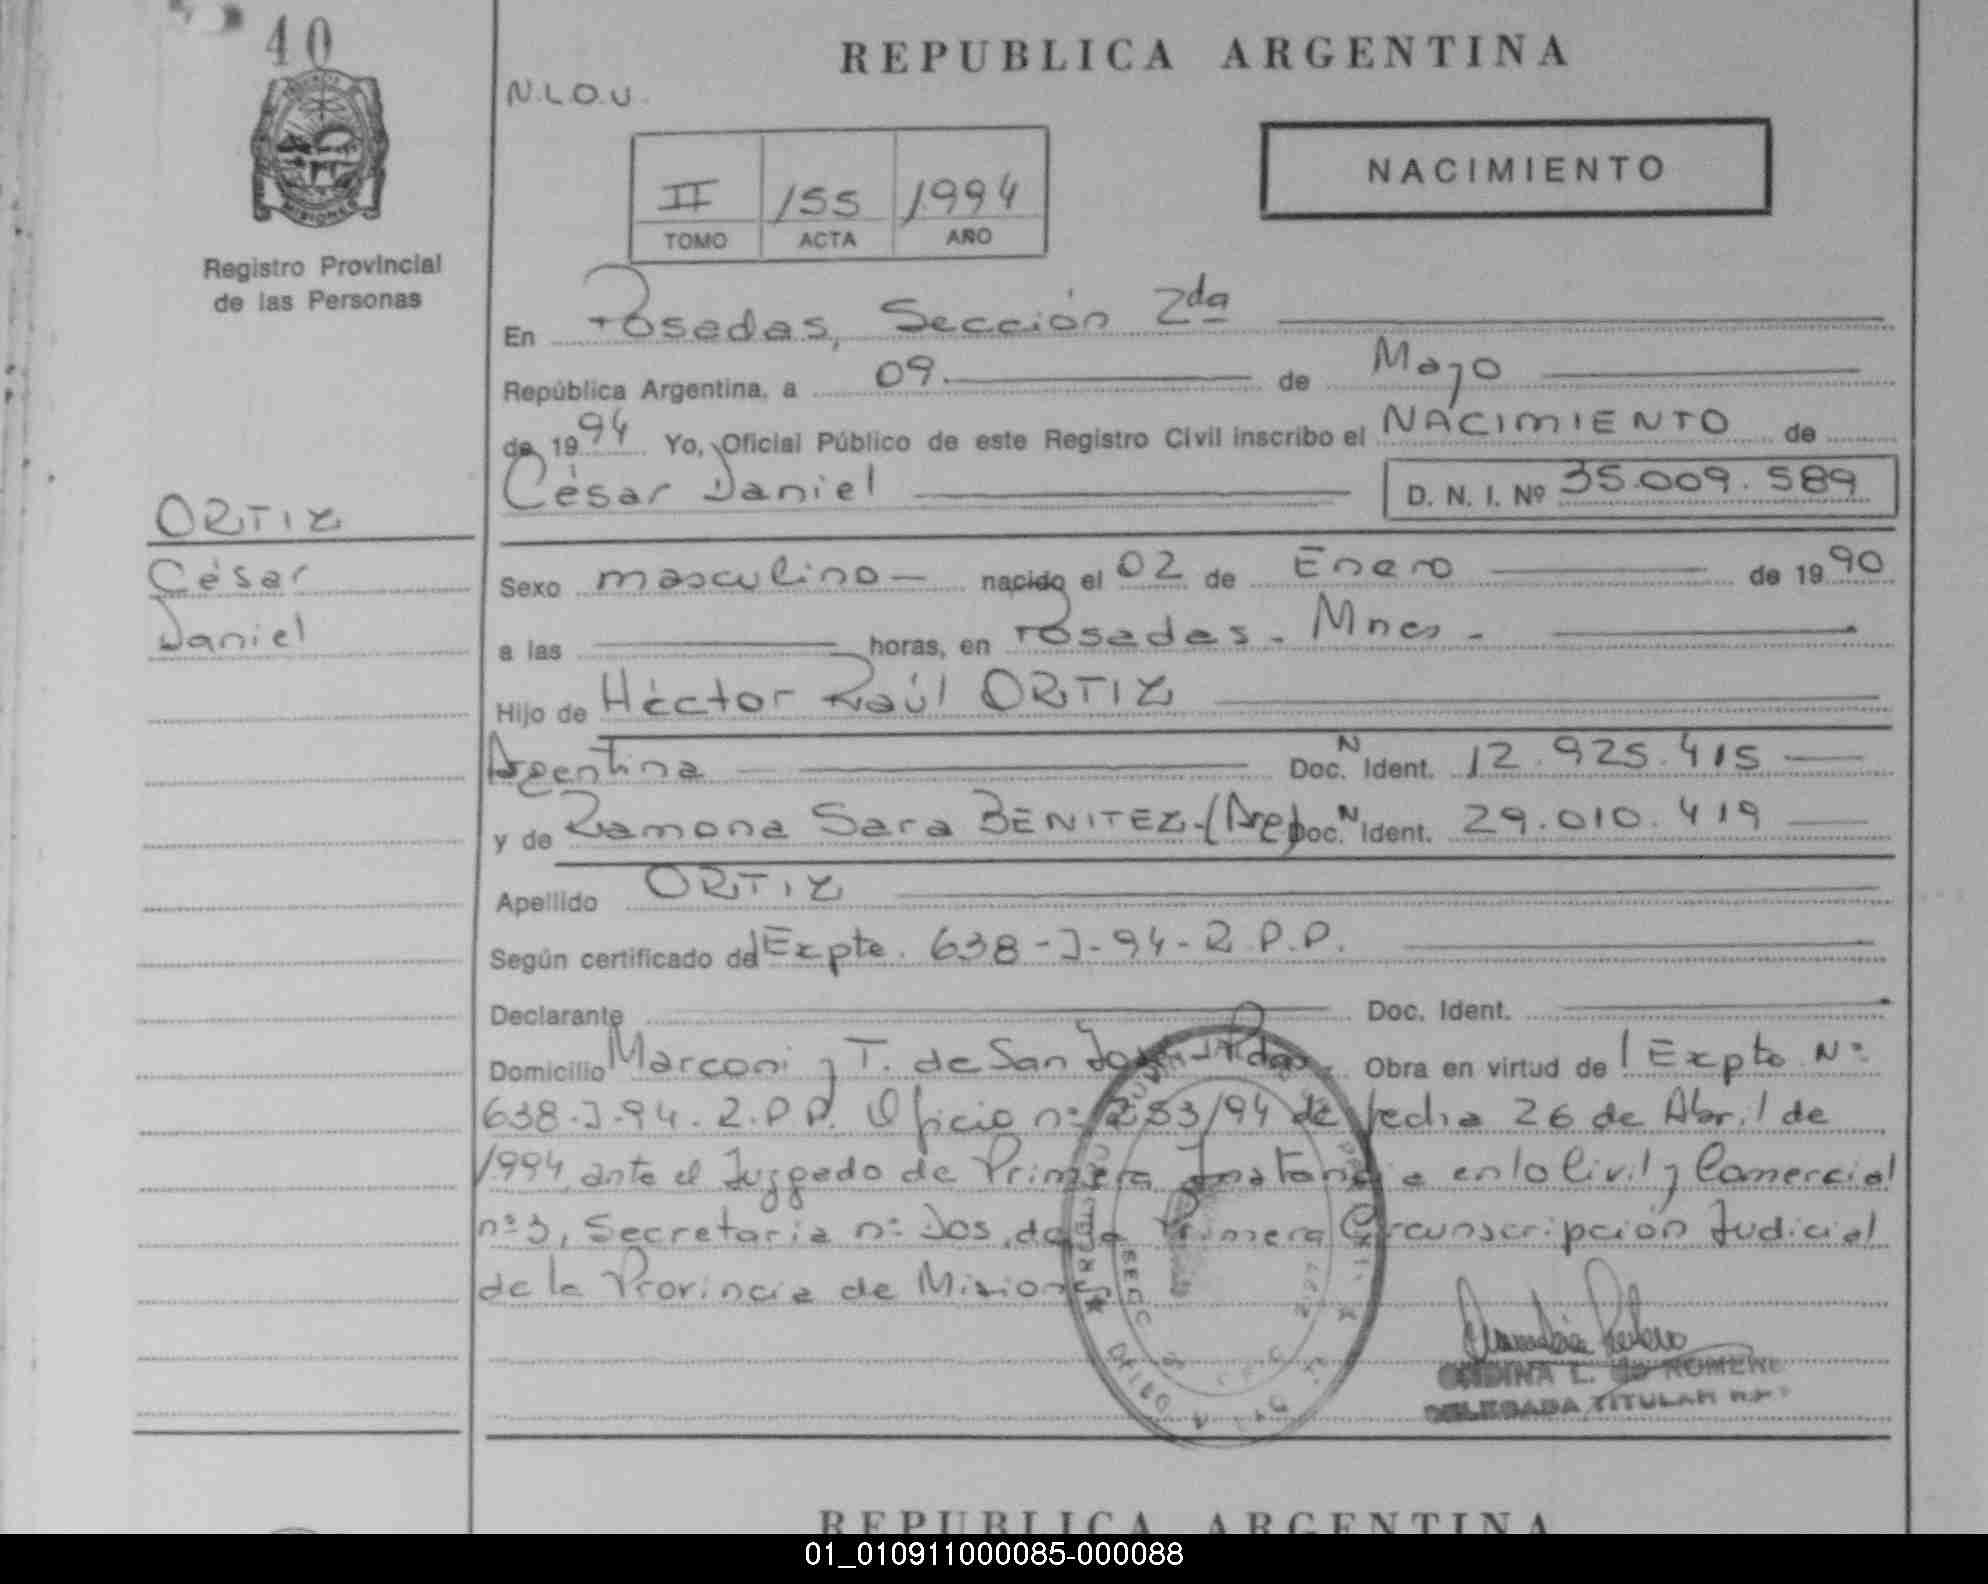 40
REPUBLICA ARGENTINA
N.L.O.U.
NACIMIENTO
II 155 1994
TOMO ACTA AÑO
MISIONES
Registro Provincial
de las Personas
En Posadas, Sección 2da
República Argentina, a 09 de Mayo
de 1994 Yo, Oficial Público de este Registro Civil inscribo el NACIMIENTO de
César Daniel D. N. I. Nº 35.009.589
ORTIZ
César
Daniel
Sexo masculino nacido el 02 de Enero de 1990
a las horas, en Posadas - Mnes -
Hijo de Héctor Raúl ORTIZ
Argentina Doc. N Ident. 12.925.415
y de Ramona Sara BENITEZ - (Arg) Doc. N Ident. 29.010.419
Apellido ORTIZ
Según certificado del Expte. 638-J-94-R.P.P.
Declarante Doc. Ident.
Domicilio Marconi y T. de San José Pdas. Obra en virtud del Expte Nº
638-J-94.R.P.P. Oficio nº 253/94 de fecha 26 de Abril de
1994, ante el Juzgado de Primera Instancia en lo Civil y Comercial
nº 3, Secretaria nº Dos, de la Primera Circunscripción Judicial
de la Provincia de Misiones
SECC
ONDINA L. de ROMERO
DELEGADA TITULAR R.P.
REPUBLICA ARGENTINA
01_010911000085-000088